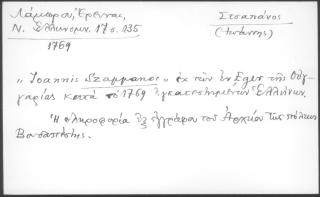 Λάμπρου, Έρευναι,
Ν. Ελληνομν. 17 σ. 135
1769
Στσαπάνος
(Ιωάννης)
„ Ioannis Szappanos" ἐκ τῶν ἐν Eger τῆς Οὑγ-
γαρίας κατὰ τὸ 1769 ἐγκατεστημένων Ἑλλήνων.
Ἡ πληροφορία ἐξ ἐγγράφου τοῦ Ἀρχείου τῆς πόλεως
Βουδαπέστης.